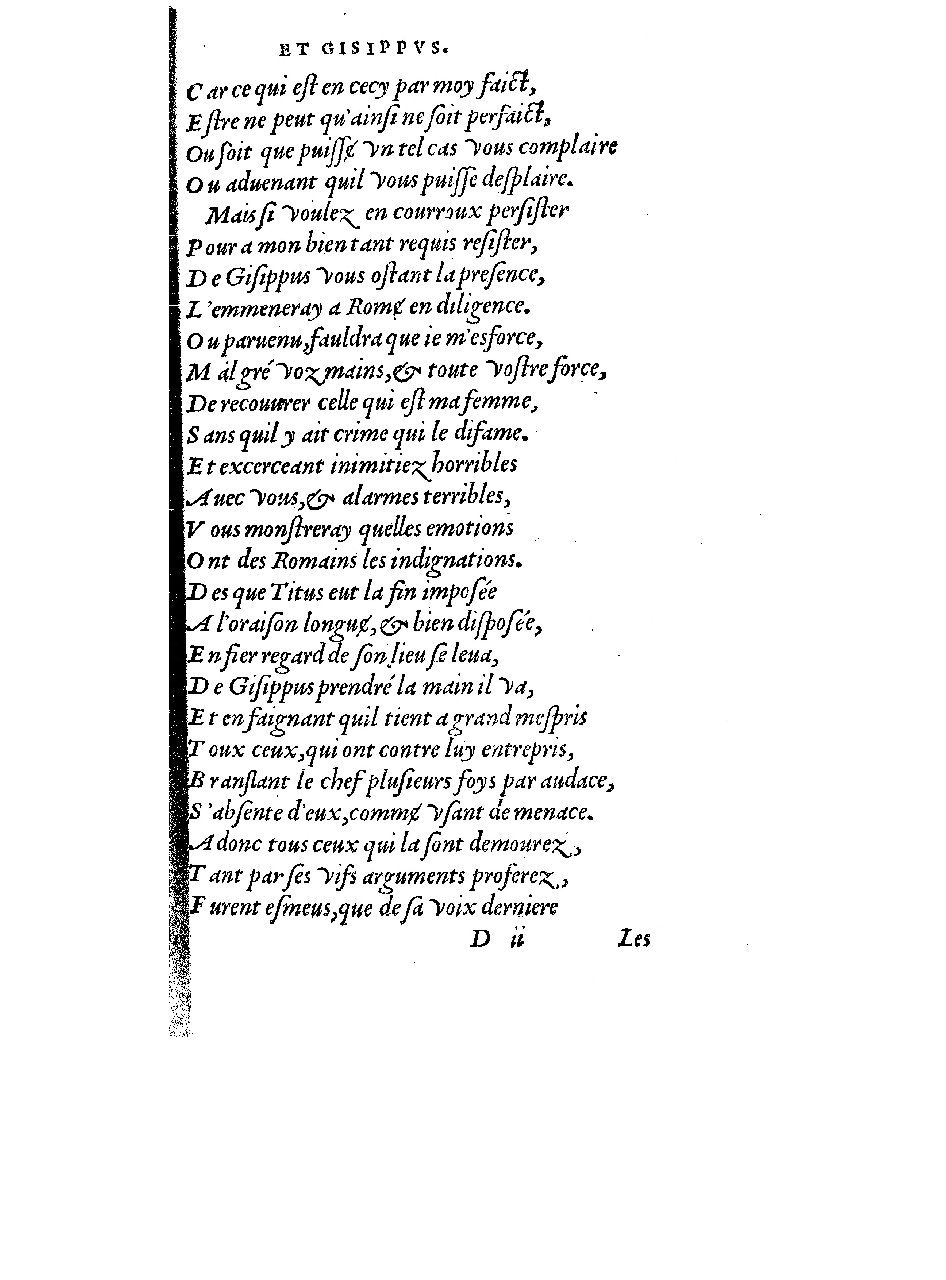 ET GISIPPVS.
Car ce qui eſt en cecy par moy faict,
Eſtre ne peut qu'ainſi ne ſoit perfaict,
Ou ſoit que puiſſɇ vn tel cas vous complaire
Ou aduenant quil vous puiſſe deſplaire.
Mais ſi voulez en courroux perſiſter
Pour a mon bien tant requis reſiſter,
De Giſippus vous oſtant la preſence,
L'emmeneray a Romɇ en diligence.
Ou paruenu, fauldra que ie m'esforce,
Malgré voz mains, & toute voſtre force,
De recouurer celle qui eſt ma femme,
Sans quil y ait crime qui le difame.
Et excerceant inimitiez horribles
Auec vous, & alarmes terribles,
Vous monſtreray quelles emotions
Ont des Romains les indignations.
Des que Titus eut la fin impoſée
A l'oraiſon longuɇ, & bien diſpoſée,
En fier regard de ſon lieu ſe leua,
De Giſippus prendré la main il va,
Et en faignant quil tient a grand meſpris
Toux ceux, qui ont contre luy entrepris,
Branſlant le chef pluſieurs foys par audace,
S'abſente d'eux, commɇ vſant de menace.
Adonc tous ceux qui la ſont demourez,
Tant par ſes vifs arguments proferez,
Furent eſmeus, que de ſa voix derniere
D ii Les